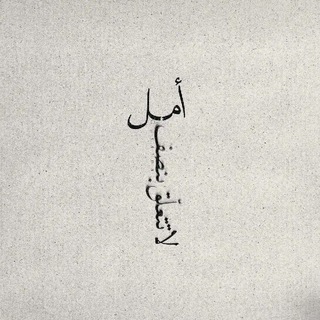 لا تتعلق بنصف
أمل